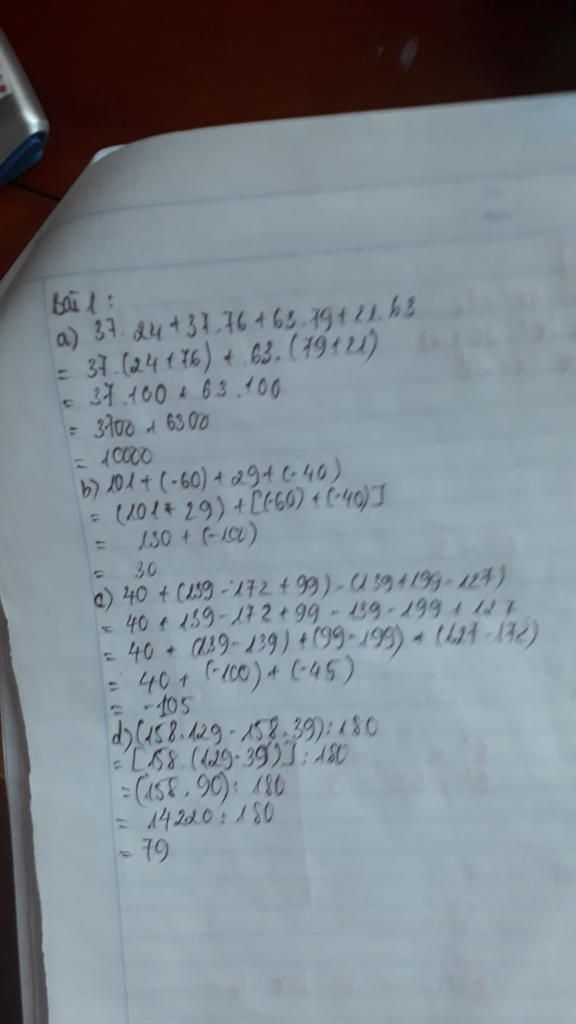 Bài 1:
a) 37.24+37.76+63.79+21.63
= 37.(24+76) + 63.(79+21)
= 37.100 + 63.100
= 3700 + 6300
= 10000
b) 101+(-60)+29+(-40)
= (101+29)+[(-60)+(-40)]
= 130 + (-100)
= 30
c) 40 + (139-172+99)-(139+199-127)
= 40 + 139-172+99-139-199+127
= 40 + (139-139)+(99-199)+(127-172)
= 40 + (-100)+(-45)
= -105
d) (158.129-158.39):180
= [158.(129-39)]:180
= (158.90): 180
= 14220:180
= 79